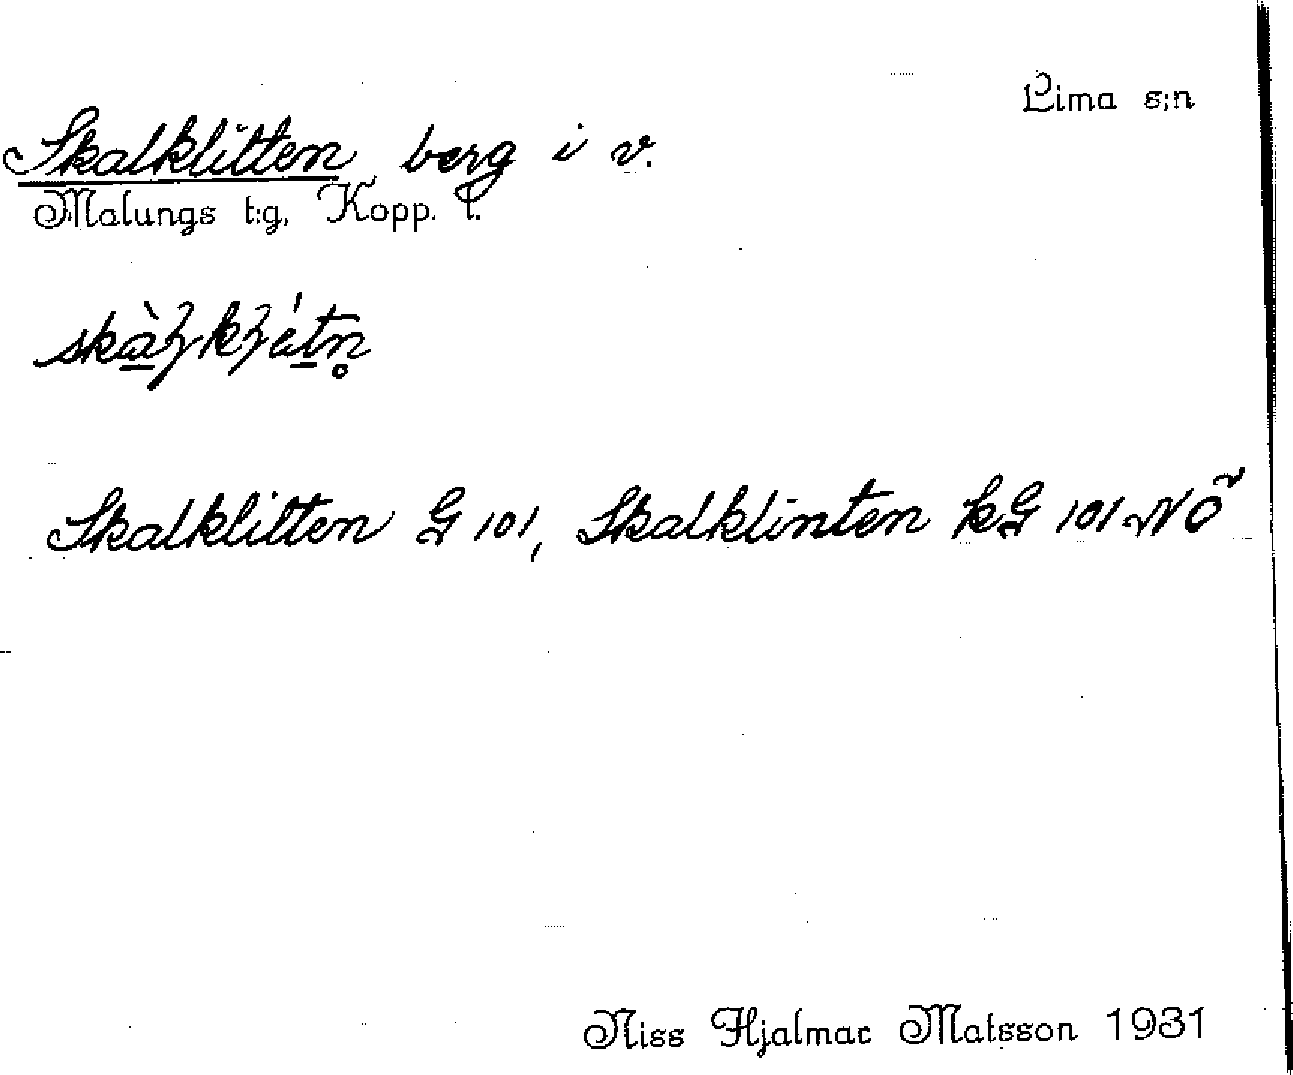 Lima s:n
Skalklitten berg i v.
Malungs t:g, Kopp. l.
Skalklitten G 101, Skalklinten kG 101 NÖ
Niss Hjalmar Matsson 1931